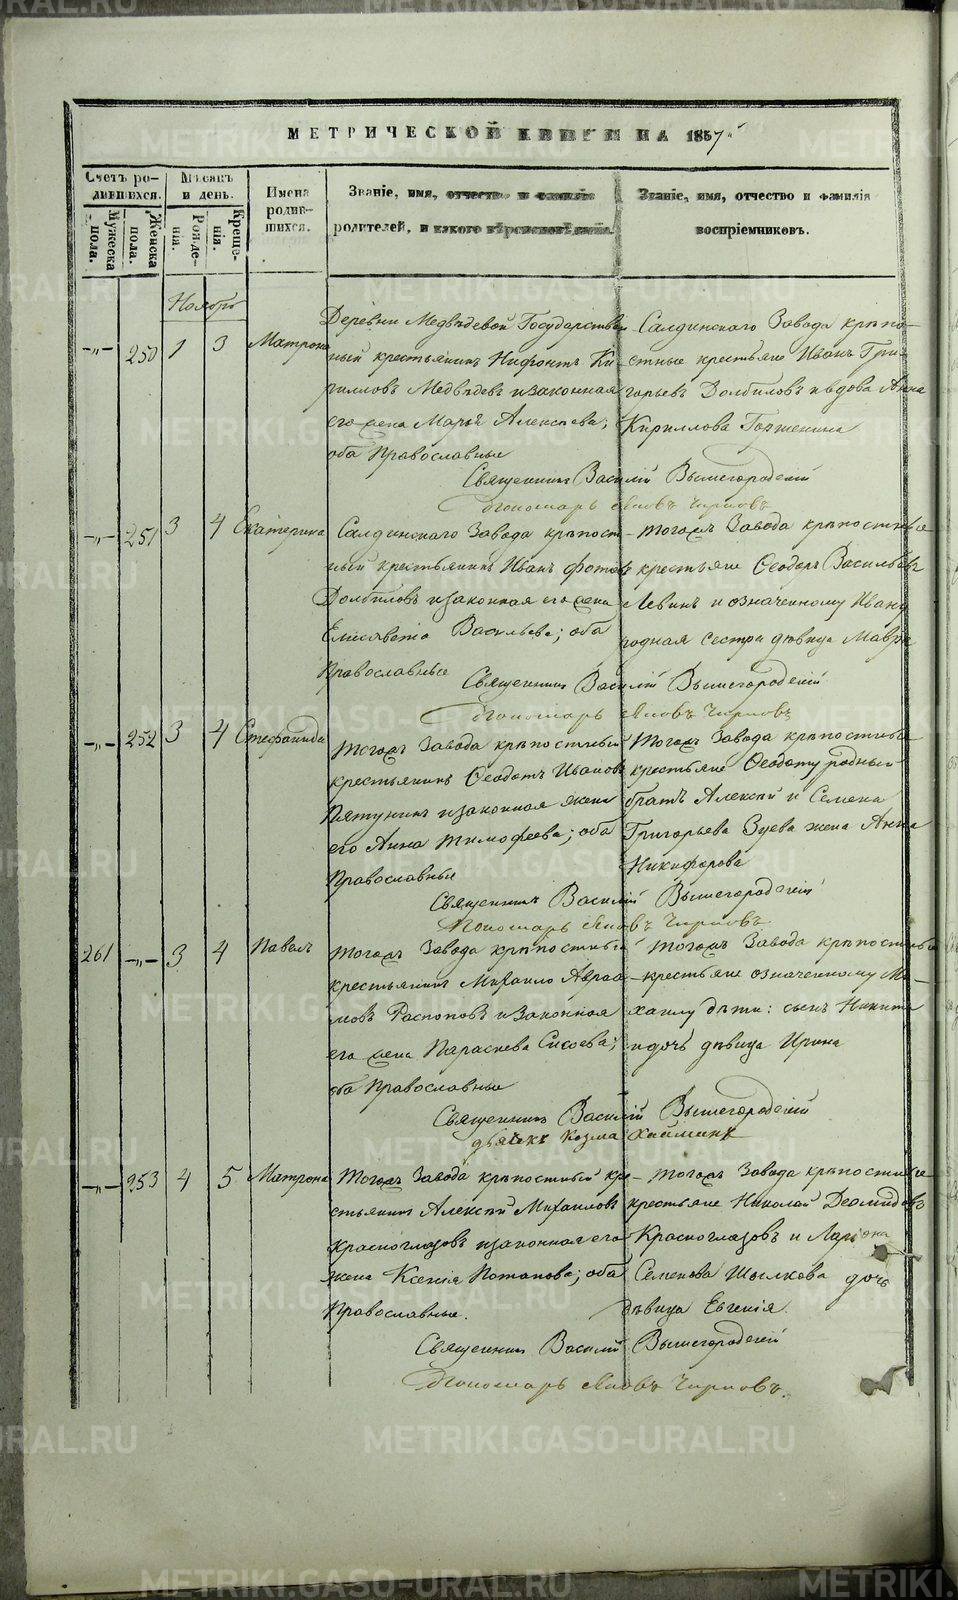 МЕТРИЧЕСКОЙ КНИГИ НА 1857
Счетъ родившихся.
Мѣсяцъ и день.
Имена родившихся.
Званіе, имя, отчество и фамилія родителей, и какого вѣроисповѣданія.
Званіе, имя, отчество и фамилія воспріемниковъ.
Мужеска пола.
Женска пола.
Рожденія.
Крещенія.
Ноябрь
250 1 3 Матрона
Деревни Медвѣдевой Государствен
ный крестьянинъ Нифонтъ Ки
рилловъ Медвѣдевъ и законная
его жена Марья Алексѣева;
оба Православные
Салдинскаго Завода крѣпо-
стные крестьяне Иванъ Гри-
горьевъ Долбиловъ и вдова Анна
Кириллова
Священникъ Василій Вышегородскій
Пономарь Яковъ Чирковъ
251 3 4 Екатерина
Салдинскаго Завода крѣпост
ный крестьянинъ Иванъ Фотовъ
Долбиловъ и законная его жена
Елисавета Васильева; оба
Православные
Тогожъ Завода крѣпостные
крестьяне Ѳеодоръ Васильевъ
Левинъ и означенному Ивану
родная сестра дѣвица Мавра
Священникъ Василій Вышегородскій
Пономарь Яковъ Чирковъ
252 3 4 Стефанида
Тогожъ Завода крѣпостный
крестьянинъ Ѳеодотъ Ивановъ
Пятунинъ и законная жена
его Анна Тимофеева; оба
Православные
Тогожъ Завода крѣпостные
крестьяне Ѳеодоту родный
братъ Алексѣй и Семена
Григорьева Зуева жена Анна
Никифорова
Священникъ Василій Вышегородскій
Пономарь Яковъ Чирковъ
261 3 4 Павелъ
Тогожъ Завода крѣпостный
крестьянинъ Михаило Авраа
мовъ Распоповъ и законная
его жена Параскева Сысоева;
оба Православные
Тогожъ Завода крѣпостные
крестьяне означенному Ми-
хаилу дѣти: сынъ Никита
и дочь дѣвица Ирина
Священникъ Василій Вышегородскій
дьячекъ Козма
253 4 5 Матрона
Тогожъ Завода крѣпостный кре-
стьянинъ Алексѣй Михаиловъ
Красноглазовъ и законная его
жена Ксенія Потапова; оба
Православные.
Тогожъ Завода крѣпостные
крестьяне Николай Деомидовъ
Красноглазовъ и Ларіона
Семенова Шылкова дочь
дѣвица Евгенія.
Священникъ Василій Вышегородскій
Пономарь Яковъ Чирковъ.
METRIKI.GASO-URAL.RU